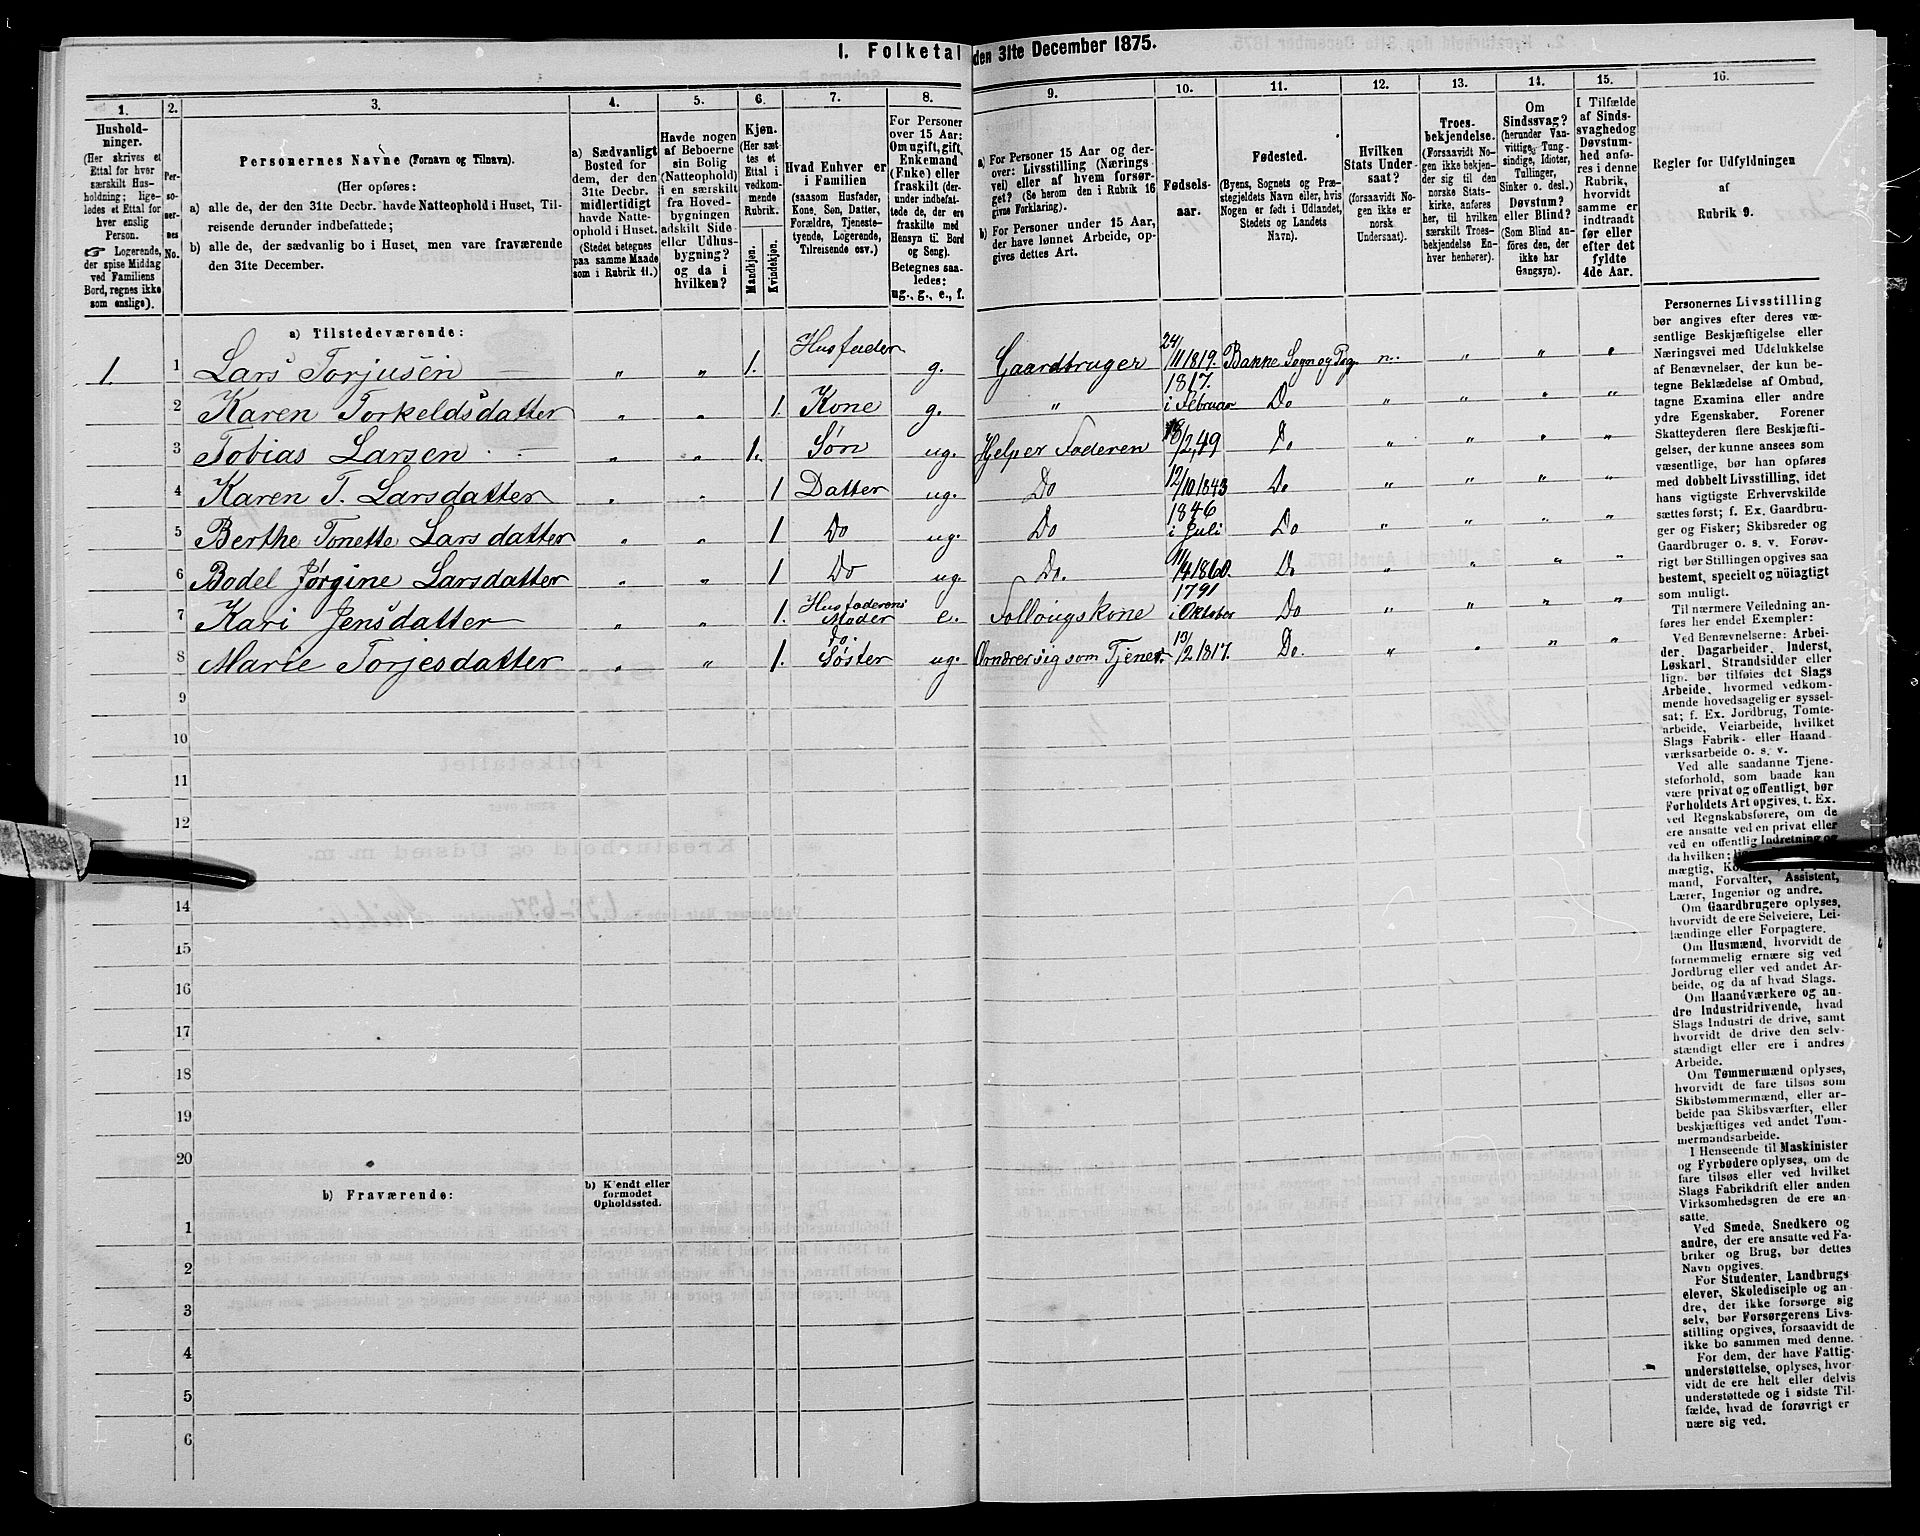 1. Folketal den 31te December 1875.
1. 2. 3. 4. 5. 6. 7. 8. 9. 10. 11. 12. 13. 14. 15. 16.
Hushold-
ninger.
(Her skrives et
Ettal for hver
særskilt Hus-
holdning; lige-
ledes et Ettal for
hver enslig
Person.
☞ Logerende,
der spise Middag
ved Familiens
Bord, regnes ikke
som enslige).
Per-
so-
ner-
nes
No.
Personernes Navne (Fornavn og Tilnavn).
(Her opføres:
a) alle de, der den 31te Decbr. havde Natteophold i Huset, Til-
reisende derunder indbefattede;
b) alle de, der sædvanlig bo i Huset, men vare fraværende
den 31te December.
a) Sædvanligt
Bosted for
dem, der den
31te Decbr.
midlertidigt
havde Natte-
ophold i Huset.
(Stedet betegnes
paa samme Maade
som i Rubrik 11.)
Havde nogen
af Beboerne
sin Bolig
(Natteophold)
i en særskilt
fra Hoved-
bygningen
adskilt Side-
eller Udhus-
bygning?
og da i
hvilken?
Kjøn.
(Her sæt-
tes et
Ettal i
vedkom-
mende
Rubrik.
Mandkjøn.
Kvindekjøn.
Hvad Enhver er
i Familien
(saasom Husfader,
Kone, Søn, Datter,
Forældre, Tjeneste-
tyende, Logerende,
Tilreisende osv.)
For Personer
over 15 Aar:
Om ugift, gift,
Enkemand
(Enke) eller
fraskilt (der-
under indbefat-
tede de, der ere
fraskilte med
Hensyn til Bord
og Seng).
Betegnes saa-
ledes:
ug., g., e., f.
a) For Personer 15 Aar og der-
over: Livsstilling (Nærings-
vei) eller af hvem forsør-
get? (Se herom den i Rubrik 16
givne Forklaring).
b) For Personer under 15 Aar,
der have lønnet Arbeide, op-
gives dettes Art.
Fødsels-
aar.
Fødested.
(Byens, Sognets og Præ-
stegjeldets Navn eller, hvis
Nogen er født i Udlandet,
Stedets og Landets
Navn).
Hvilken
Stats Under-
saat?
(forsaavidt No-
gen ikke er
norsk
Undersaat).
Troes-
bekjendelse.
(Forsaavidt No-
gen ikke bekjen-
der sig til den
norske Stats-
kirke, anføres
her, til hvilken
særskilt Troes-
bekjendelse En-
hver henhører).
Om
Sindssvag?
(herunder Van-
vittige, Tung-
sindige, Idioter,
Tullinger,
Sinker o. desl.)
Døvstum?
eller Blind?
(Som Blind an-
føres den, der
ikke har
Gangsyn).
I Tilfælde
af Sinds-
svaghed og
Døvstum-
hed anfø-
res i denne
Rubrik,
hvorvidt
samme er
indtraadt
før eller
efter det
fyldte
4de Aar.
Regler for Udfyldningen
af
Rubrik 9.
a) Tilstedeværende:
1. 1 Lars Torjusen " " 1. Husfader g. Gaardbruger 24/11 1819. Bakke Sogn og Pg. n.. " " "
2 Karen Torkeldsdatter " " 1. Kone g. " 1817. i Februar Do " " " "
3 Tobias Larsen " " 1. Søn ug. Hjelper Faderen /2,49 Do " " " "
4 Karen T. Larsdatter " " 1 Datter ug. Do 12/10 1843 Do " " " "
5 Berthe Tonette Larsdatter " " 1 Do ug. Do 1846 i Juli Do " " " "
6 Bodel Jørgine Larsdatter " " 1 Do ug. Do. /4 1860. Do " " " "
7 Kari Jensdatter " " 1. Husfaderens Moder e. Føllougskone 1791 i Oktober Do " " " "
8 Marie Torjesdatter " " 1. Do. Søster ug. Ernærer sig som Tjener. 13/2 1817. Do. " " " "
9
10
11
12
14
15
16
17
18
19
20
b) Fraværende:
b) Kjendt eller
formodet
Opholdssted.
1
2
3
4
5
6
Personernes Livsstilling
bør angives efter deres væ-
sentlige Beskjæftigelse eller
Næringsvei med Udelukkelse
af Benævnelser, der kun be-
tegne Beklædelse af Ombud,
tagne Examina eller andre
ydre Egenskaber. Forener
Skatteyderen flere Beskjæfti-
gelser, der kunne ansees som
væsentlige, bør han opføres
med dobbelt Livsstilling, idet
hans vigtigste Erhvervskilde
sættes først; f. Ex. Gaardbru-
ger og Fisker; Skibsreder og
Gaardbruger o. s. v. Forøv-
rigt bør Stillingen opgives saa
bestemt, specielt og nöiagtigt
som muligt.
Til nærmere Veiledning an-
føres her endel Exempler:
Ved Benævnelserne: Arbei-
der, Dagarbeider, Inderst,
Løskarl, Strandsidder eller
lign. bør tilføies det Slags
Arbeide, hvormed vedkom-
mende hovedsagelig er syssel-
sat; f. Ex. Jordbrug, Tomte-
arbeide, Veiarbeide, hvilket
Slags Fabrik- eller Haand-
værksarbeide o. s. v.
Ved alle saadanne Tjene-
steforhold, som baade kan
være privat og offentligt, bør
Forholdets Art opgives, t. Ex.
ved Regnskabsførere, om de
ere ansatte ved en privat eller
ved en offentlig Indretning og
da hvilken;
mægtig,
mand, Forvalter, Assistent,
Lærer, Ingeniør og andre.
Om Gaardbrugere oplyses,
hvorvidt de ere Selveiere, Lei-
lændinge eller Forpagtere.
Om Husmænd, hvorvidt de
fornemmelig ernære sig ved
Jordbrug eller ved andet Ar-
beide, og da af hvad Slags.
Om Haandværkere og an-
dre Industridrivende, hvad
Slags Industri de drive, samt
hvorvidt de drive den selv-
stændigt eller ere i andres
Arbeide.
Om Tømmermænd oplyses,
hvorvidt de fare tilsøs som
Skibstømmermænd, eller ar-
beide paa Skibsværfter, eller
beskjæftiges ved andet Tøm-
mermandsarbeide.
I Henseende til Maskinister
og Fyrbødere oplyses, om de
fare tilsøs eller ved hvilket
Slags Fabrikdrift eller anden
Virksomhedsgren de ere an-
satte.
Ved Smede, Snedkere og
andre, der ere ansatte ved Fa-
briker og Brug, bør dettes
Navn opgives.
For Studenter, Landbrugs-
elever, Skoledisciple og an-
dre, der ikke forsørge sig
selv, bør Forsørgerens Livs-
stilling opgives, forsaavidt de
ikke bo sammen med denne.
For dem, der have Fattig-
understøttelse, oplyses, hvor-
vidt de ere helt eller delvis
understøttede og i sidste Til-
fælde, hvad de forøvrigt er-
nære sig ved.